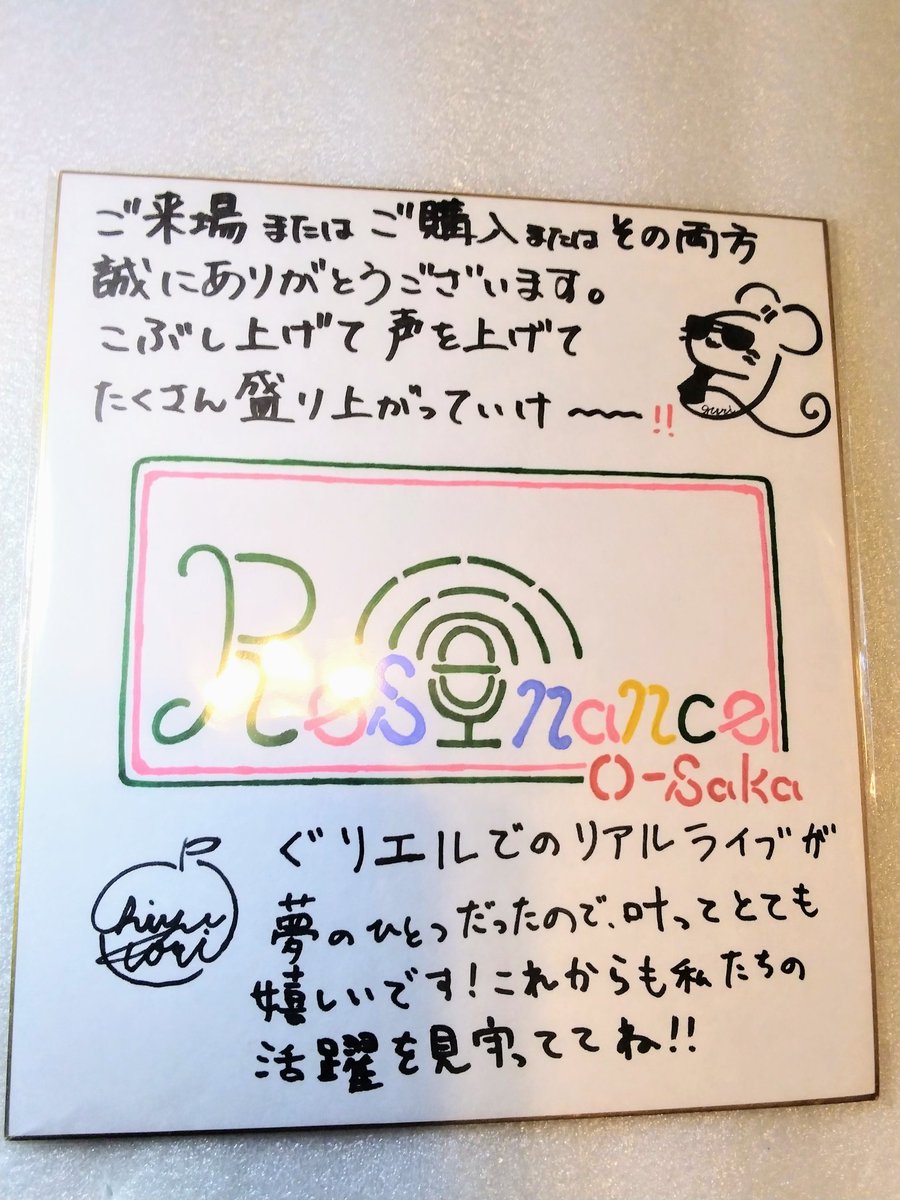 ご来場またはご購入またはその両方
誠にありがとうございます。
こぶし上げて声を上げて
たくさん盛り上がっていけ〜〜!!
guri
Resonance
O-Saka
ぐリエルでのリアルライブが
夢のひとつだったので、叶ってとても
嬉しいです!これからも私たちの
活躍を見守っててね!!